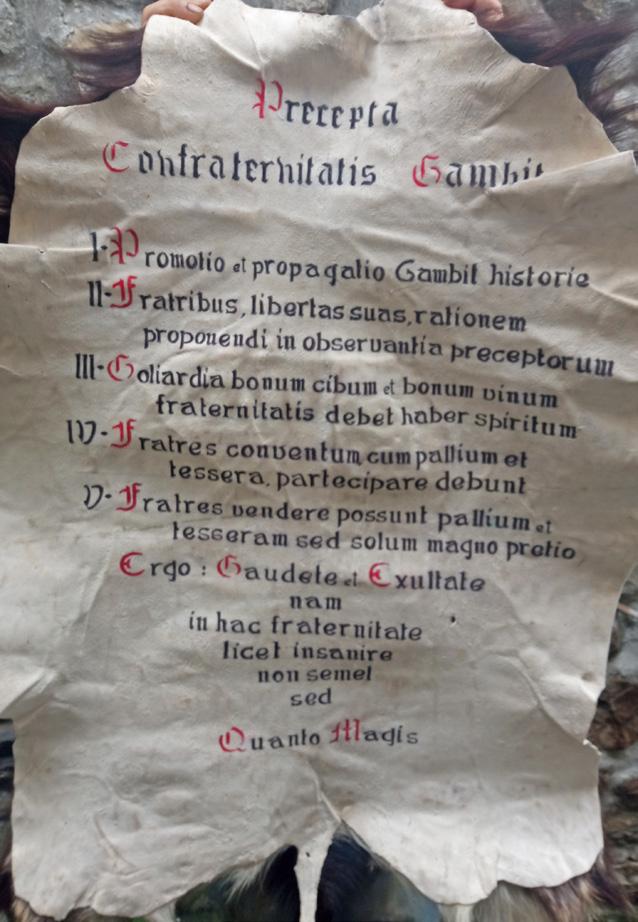 Precepta
Confraternitatis Gambit
I-Promotio et propagatio Gambit historie
II-Fratribus, libertas suas, rationem
proponendi in observantia preceptorum
III-Goliardia bonum cibum et bonum vinum
fraternitatis debet haber spiritum
IV-Fratres conventum cum pallium et
tessera, partecipare debunt
V-Fratres vendere possunt pallium et
tesseram sed solum magno pretio
Ergo: Gaudete et Exultate
nam
in hac fraternitate
licet insanire
non semel
sed
Quanto Magis